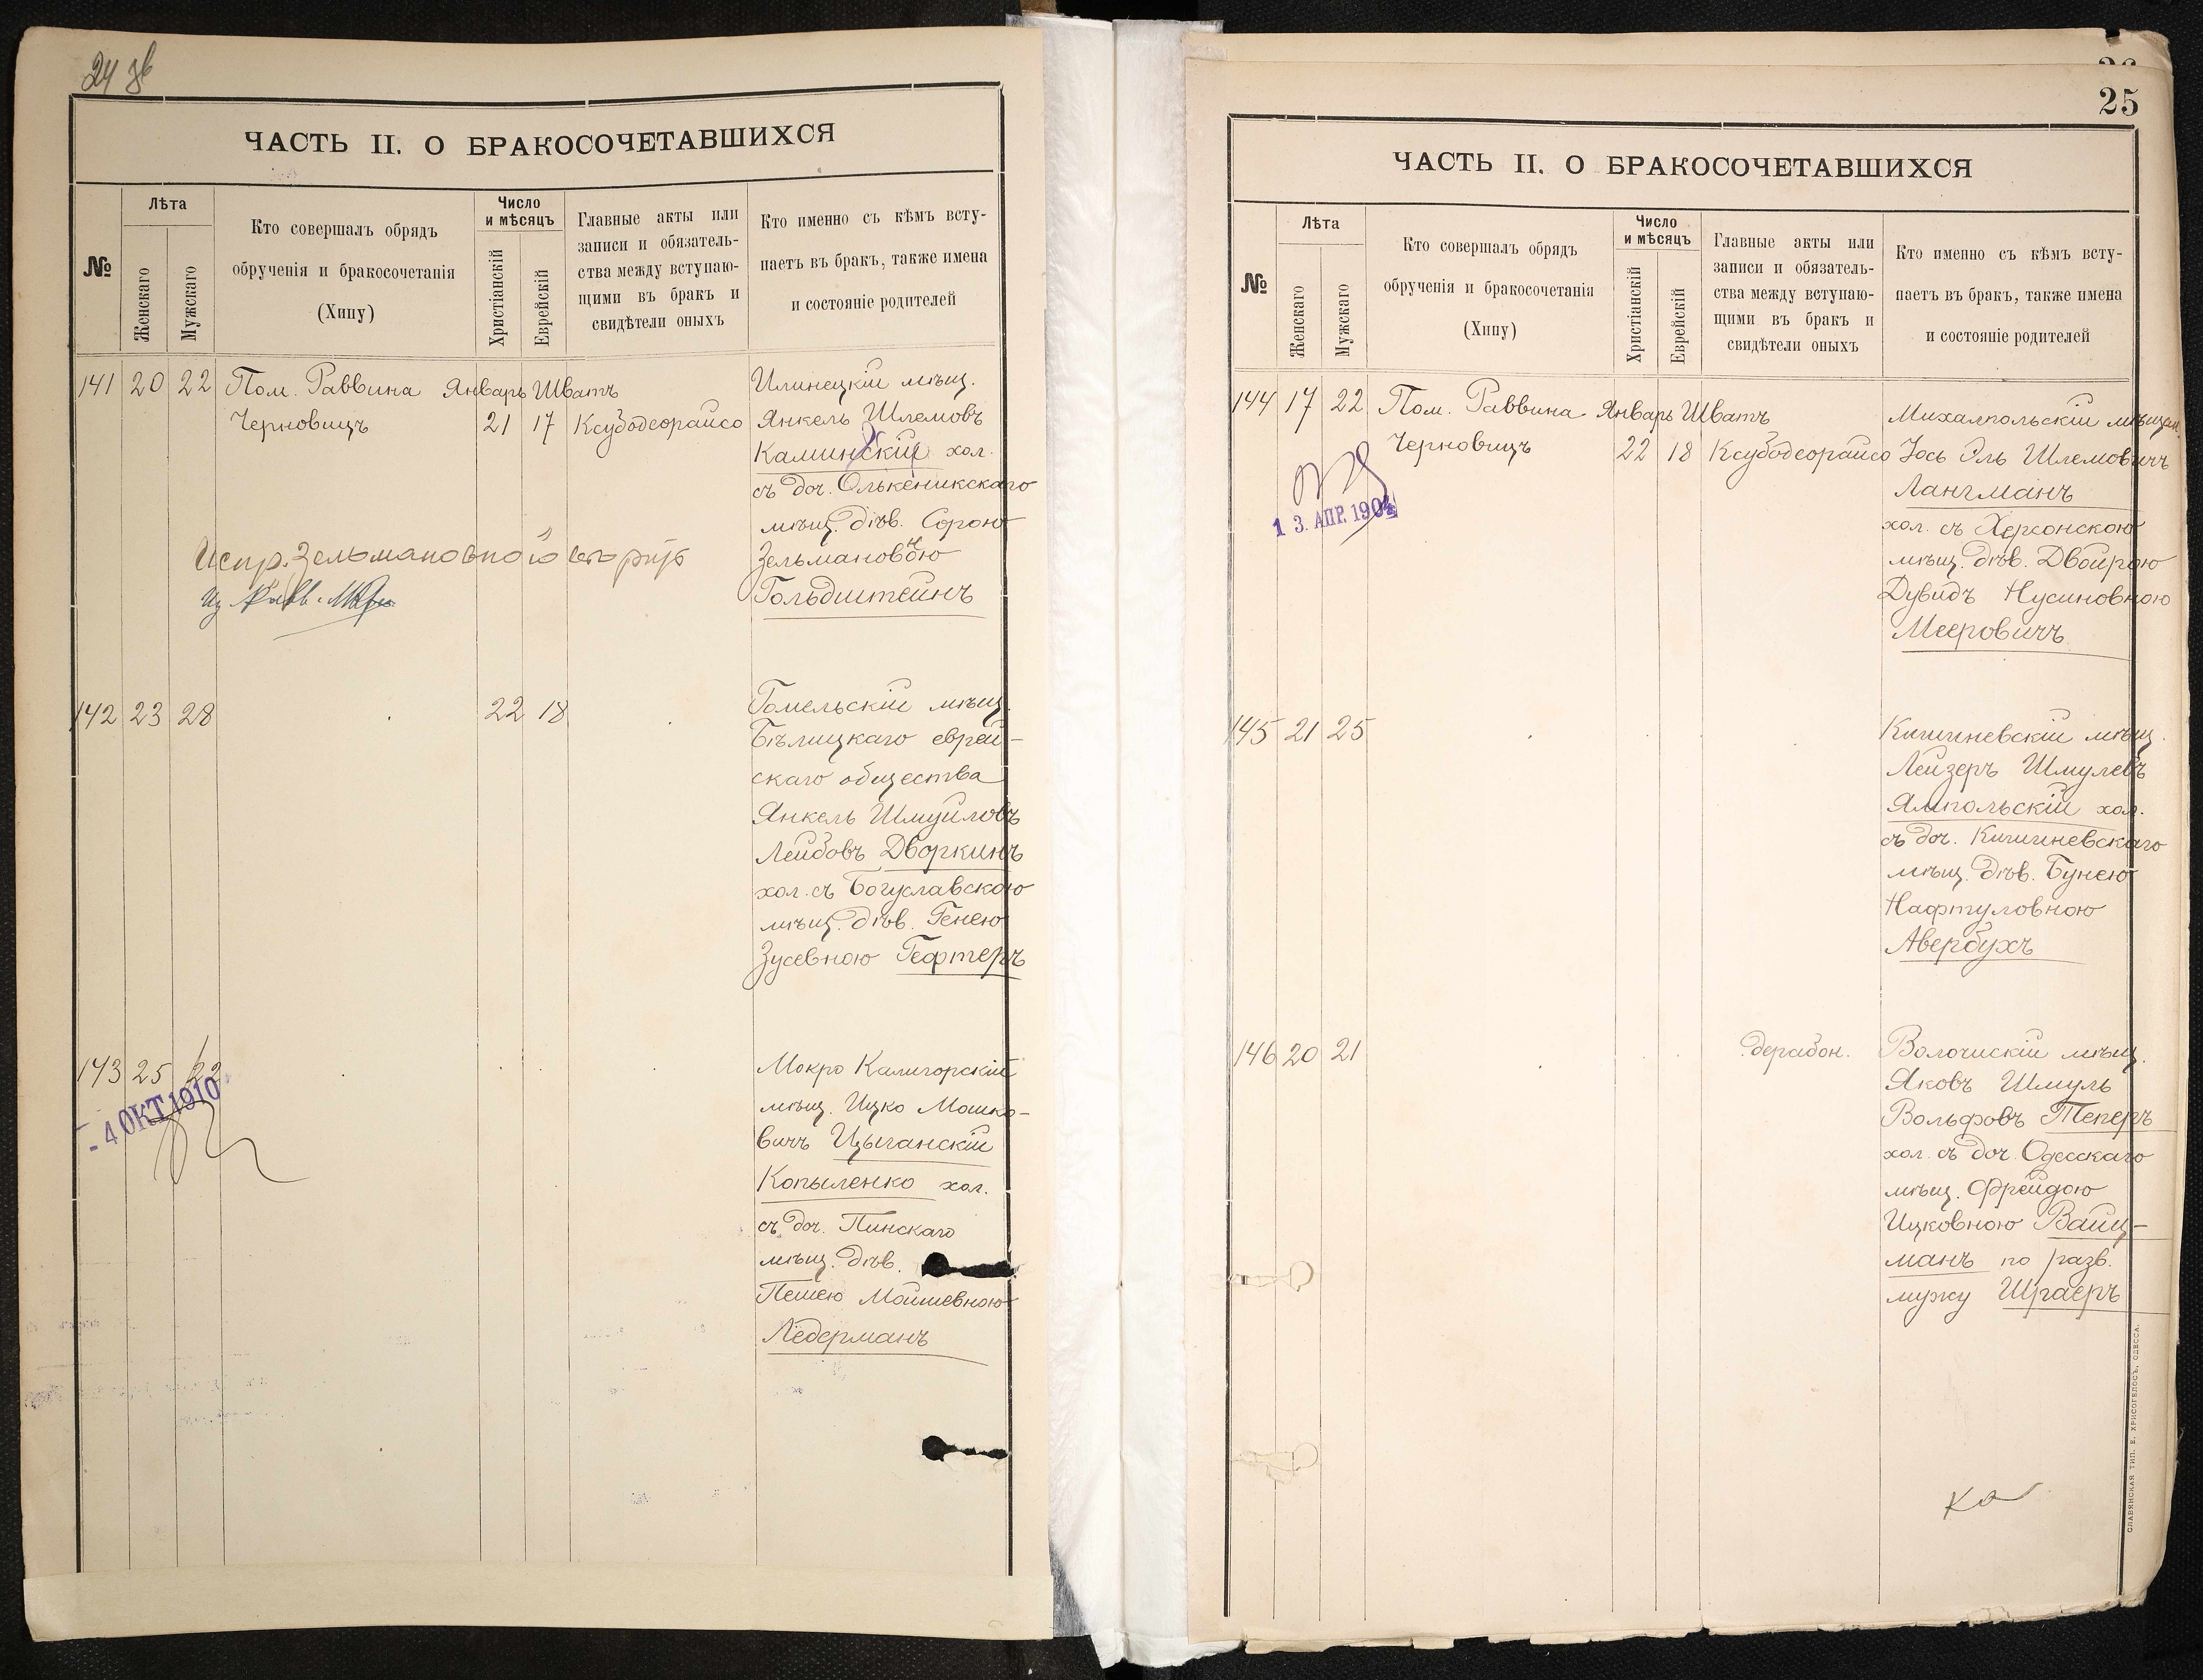 24 зв
ЧАСТЬ II. О БРАКОСОЧЕТАВШИХСЯ
№
Лѣта
Женскаго
Мужскаго
Кто совершалъ обрядъ
обрученія и бракосочетанія
(Хипу)
Число
и мѣсяцъ
Христіанскій
Еврейскій
Главные акты или
записи и обязатель-
ства между вступаю-
щими въ бракъ и
свидѣтели оныхъ
Кто именно съ кѣмъ всту-
паетъ въ бракъ, также имена
и состояніе родителей
141 20 22 Пом. Раввина Январь Шватъ
Черновицъ 21 17 Ксубодеорайсо
Илинецкій мѣщ.
Янкель Шлемовъ
Каминскій хол.
съ доч. Олькеникскаго
мѣщ. дѣв. Сорою
Зельмановною
Гольдштейнъ
Испр. Зельмановной
142 23 28 22 18
Гомельскій мѣщ.
Бѣлицкаго еврей-
скаго общества
Янкель Шмуйловъ
Лейбовъ Дворкинъ
хол. съ Богуславскою
мѣщ. дѣв. Генею
Зусевною Гефтеръ
143 25 22
- 4 ОКТ 1910
Мокро Калигорскій
мѣщ. Ицко Мошко-
вичъ Цыганскій
Копыленко хол.
съ доч. Пинскаго
мѣщ. дѣв.
Пешею Мойшевною
Ледерманъ
25
ЧАСТЬ II. О БРАКОСОЧЕТАВШИХСЯ
№
Лѣта
Женскаго
Мужскаго
Кто совершалъ обрядъ
обрученія и бракосочетанія
(Хипу)
Число
и мѣсяцъ
Христіанскій
Еврейскій
Главные акты или
записи и обязатель-
ства между вступаю-
щими въ бракъ и
свидѣтели оныхъ
Кто именно съ кѣмъ всту-
паетъ въ бракъ, также имена
и состояніе родителей
144 17 22 Пом. Раввина Январь Шватъ
Черновицъ 22 18 Ксубодеорайсо
13. АПР. 1904
Михалпольскій мѣщан.
Іось Эль Шлемовичъ
Лангманъ
хол. съ Херсонскою
мѣщ. дѣв. Двойрою
Дувидъ Нусиновною
Мееровичъ
145 21 25
Кишиневскій мѣщ.
Лейзеръ Шмулевъ
Ямпольскій хол.
съ доч. Кишиневскаго
мѣщ. дѣв. Бунею
Нафтуловною
Авербухъ
146 20 21 дерабон.
Волочискій мѣщ.
Яковъ Шмуль
Вольфовъ Теперъ
хол. съ доч. Одесскаго
мѣщ. Фрейдою
Ицковною Вайц-
манъ по разв.
мужу Шраеръ
СЛАВЯНСКАЯ ТИП. Е. ХРИСОГЕЛОСЪ, ОДЕССА.